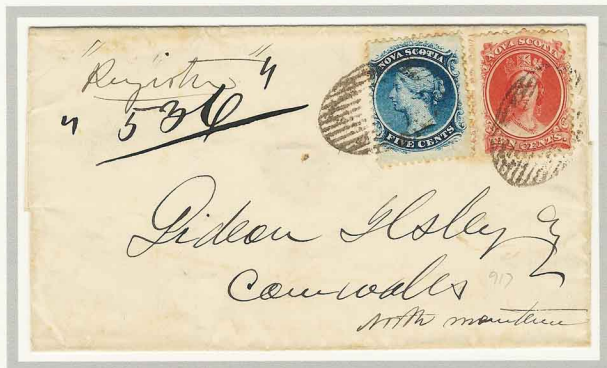 "Register"
" 536
NOVA SCOTIA
FIVE CENTS
NOVA SCOTIA
TEN CENTS
Gideon Ilsley
Cornwallis
917
North mountain